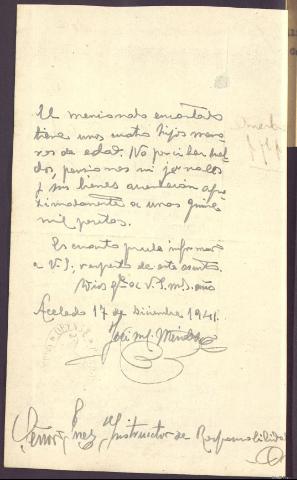 El mencionado encartado
tiene unos cuatro hijos meno-
res de edad. No percibe suel-
dos, pensiones ni jornales
y sus bienes ascenderán apro-
ximadamente a unas quince
mil pesetas.
Es cuanto puedo informar
a V.S. respecto de este asunto.
Dios gde a V.S. ms. años
Acebedo 17 de Diciembre 1941.
José M.
Señor Juez Instructor de Responsabilidades